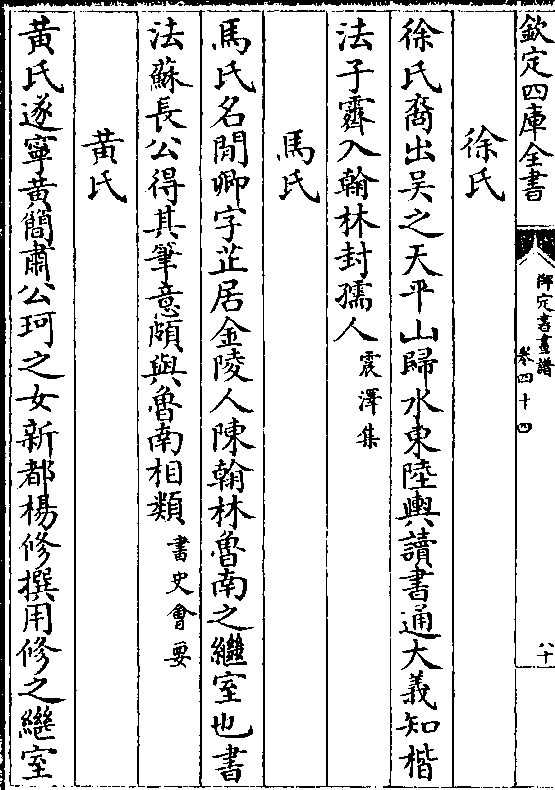 欽定四庫全書
御定書畫譜
卷四十四
八十
徐氏
徐氏裔出吴之天平山歸水東陸輿讀書通大義知楷
法子霽入翰林封孺人震澤集
馬氏
馬氏名閒卿字芷居金陵人陳翰林魯南之繼室也書
法蘇長公得其筆意頗與魯南相類書史會要
黃氏
黃氏遂寧黃簡肅公珂之女新都楊修撰用修之繼室